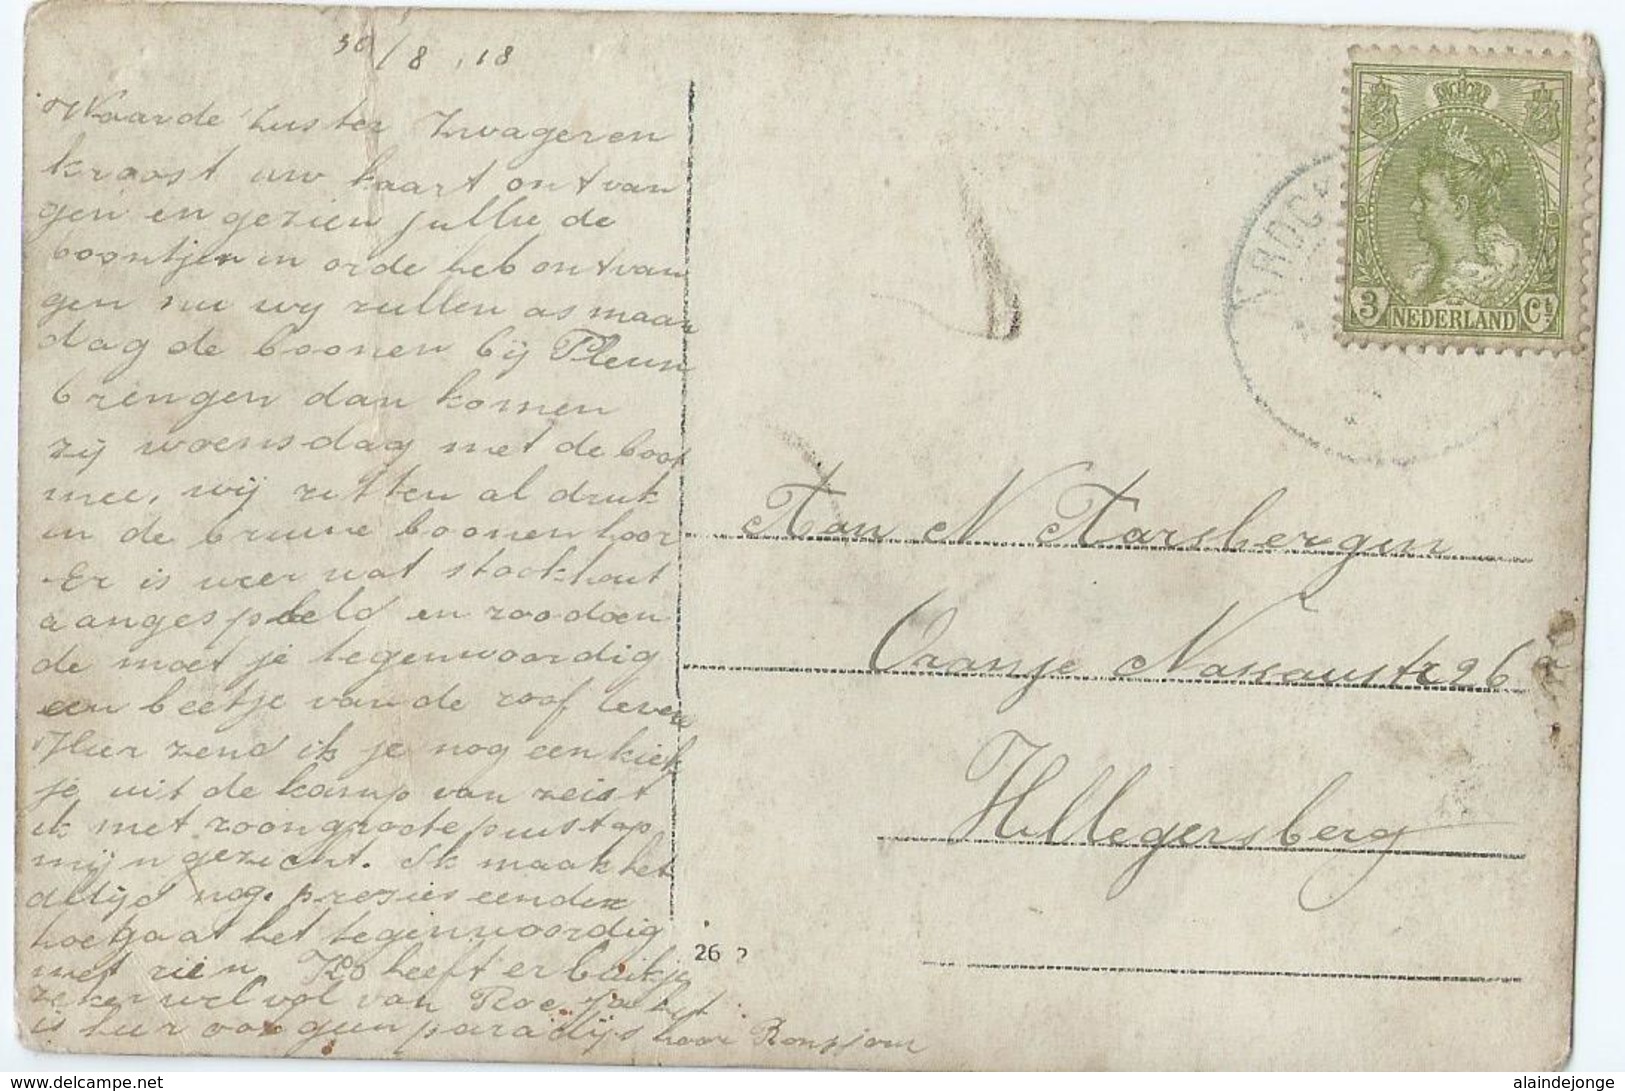 30/8 '18
Waarde Zuster Zwager en
kroost uw kaart ontvan
gen en gezien jullie de
boontjen in orde heb ontvan
gen nu wy zullen as maan
dag de boonen bij Pleun
brengen dan komen
zij woensdag met de boot
mee, wij zitten al druk
in de bruine boonen hoor
Er is weer wat stookhout
aangespoeld en zoodoen
de moet je tegenwoordig
een beetje van de roof leven
Hier zend ik je nog een kiek
je uit de kamp van zeist
ik met zoon groote puist op
mijn gezicht. Ik maak het
altijd nog. precies eender
hoe gaat het tegenwoordig
met zien Ko heeft er buikje
zeker wel vol van
is hier oor geen paradijs hoor
Aan N Aarsbergen
Oranje Nassaustr 26
Hillegersberg
26
3 NEDERLAND Ct
alaindejonge
www.delcampe.net